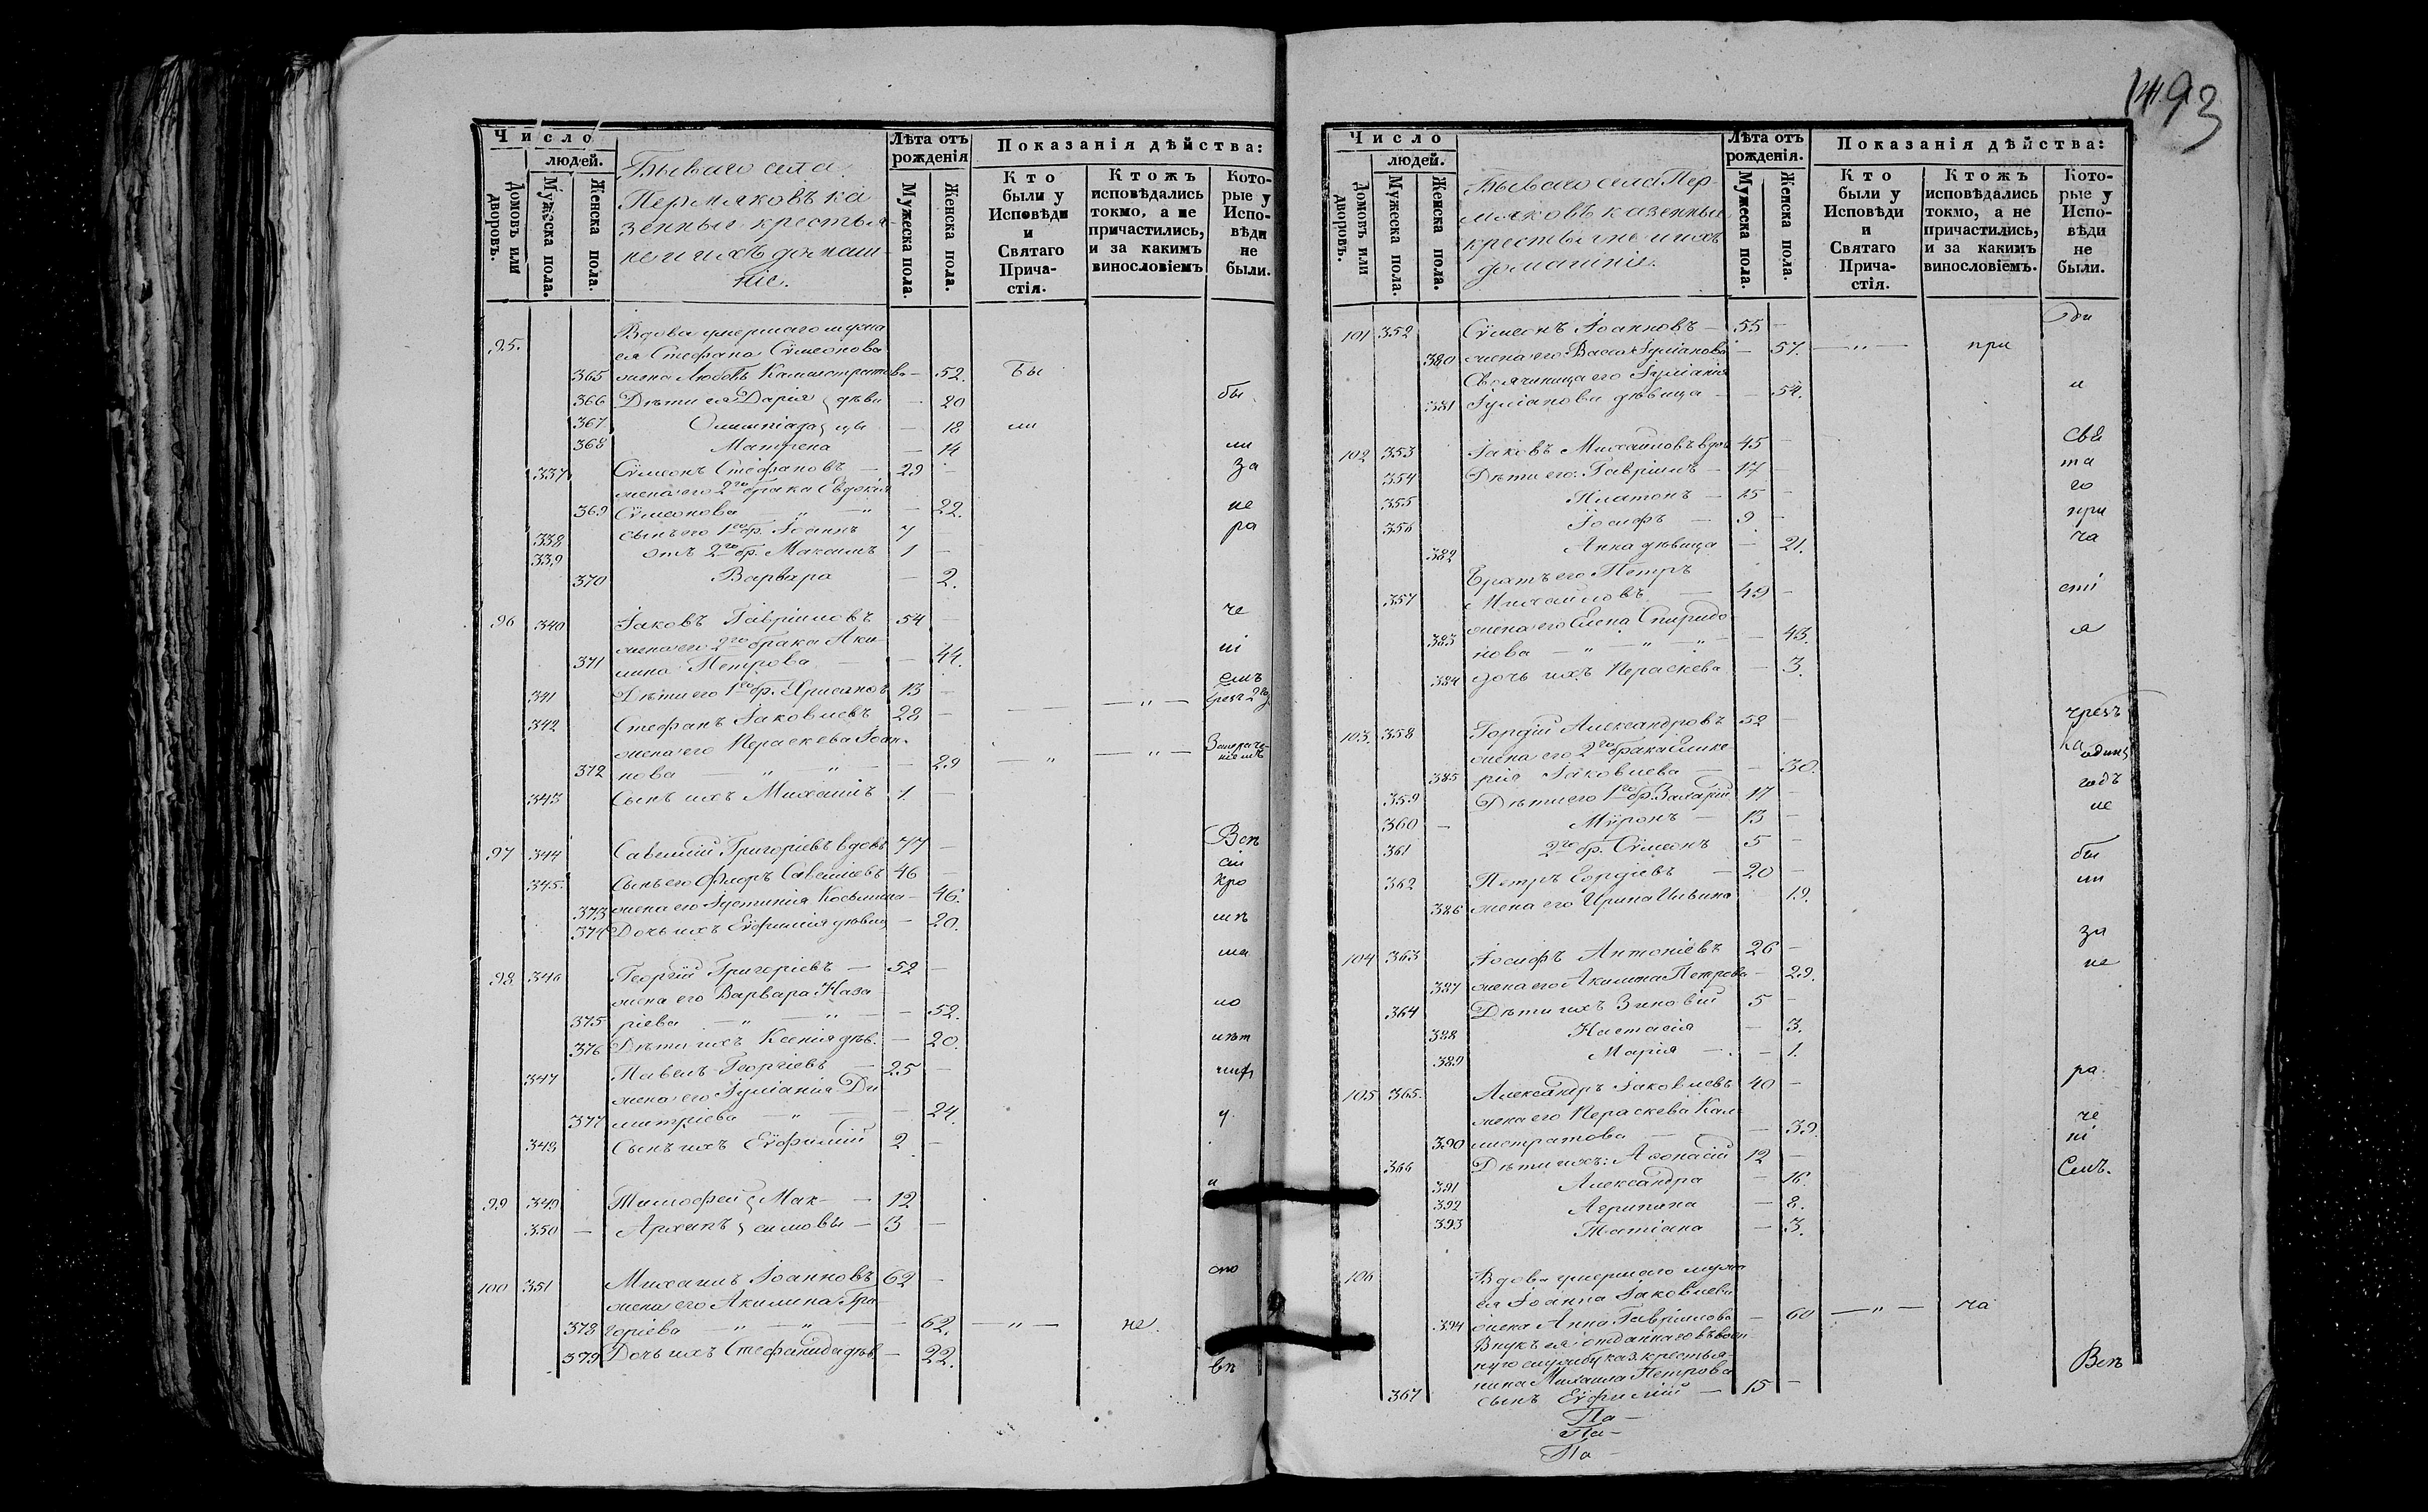 1493
Число
людей.
Домовъ или дворовъ.
Мужеска пола.
Женска пола.
Бываго села
Пермяковъ ка
зенныя крестья
не и ихъ домаш
ніе.
Лѣта отъ рожденія
Мужеска пола.
Женска пола.
Показанія дѣйства:
Кто были у Исповѣди и Святаго Прича-стія.
Ктожъ исповѣдались токмо, а не причастились, и за какимъ винословіемъ
Кото-рые у Испо-вѣди не были.
95. Вдова умершаго мужа
ея Стефана Сѵмеонова
365 жена Любовь Калистратова — 52. Бы
366 Дѣти ея Дарія } дѣви — 20 бы
367 Олимпіада } цы — 18 ли
368 Матрена — 14 ли
337 Сѵмеонъ Стефановъ — 29 — за
жена его 2го брака Евдокія
369 Сѵмеонова — „ — „ — 22. не
338 сынъ его 1го бр. Іоаннъ 7 — ра
339 отъ 2го бр. Максимъ 1 —
370 Варвара — 2.
96 340 Іаковъ Гавріиловъ 54 — че
жена его 2го брака Аки
371 лина Петрова — — 44. ні
341 Дѣти его 1го бр. Хрисанѳъ 13 — емъ
342 Стефанъ Іаковлевъ 28 —
жена его Параскева Іоан
372 нова — „ — „ — 29 — „ — „ —
343 Сынъ ихъ Михаилъ 1 —
97 344 Савелій Григоріевъ вдовъ 77 — Всѣ
345. Сынъ его Флоръ Савеліевъ 46 — сіи
373 жена его Іустинія Косьмина — 46. кро
374 Дочь ихъ Еѵфимія дѣвиц — 20. мѣ
98 346 Георгій Григоріевъ — 52 — ма
жена его Варвара Наза
375 ріева — „ — „ — 52. ло
376 Дѣти ихъ Ксенія дѣв. — 20. лѣт
347 Павелъ Георгіевъ — 25 —
жена его Іуліанія Ди
377 митріева — „ — — 24.
348 Сынъ ихъ Еѵфимій 2 —
99 349 Тимофей } Мак — 12 и
350 — Архипъ } симовы — 3 —
100 351 Михаилъ Іоанновъ 62 —
жена его Акилина Гри
378 горіева — „ — „ — — 62. — „ — не
379 Дочь ихъ Стефанида дѣв — 22.
Число
людей.
Домовъ или дворовъ.
Мужеска пола.
Женска пола.
Бываго села Пер
мяковъ казенныя
крестьяне и ихъ
домашніе.
Лѣта отъ рожденія.
Мужеска пола.
Женска пола.
Показанія дѣйства:
Кто были у Исповѣди и Святаго Прича-стія.
Ктожъ исповѣдались токмо, а не причастились, и за какимъ винословіемъ.
Кото-рые у Испо-вѣди не были.
101 352 Сѵмеонъ Іоанновъ — 55 —
380 жена его Васса Іуліанова — 57. — „ — при
Своячиница его Іуліанія
381 Іуліанова дѣвица — — 54. и
102 353 Іаковъ Михаиловъ вдов 45 — свя
354 Дѣти его: Гавріилъ — 17 — та
355 Платонъ — 15 — го
356 Іосифъ — 9 — при
382 Анна дѣвица — 21. ча
Братъ его Петръ
357 Михаиловъ — 49 — сті
жена его Елена Спиридо
383 нова — „ — „ — — 43. я
384 дочь ихъ Параскева — 3.
103. 358 Гордій Александровъ 52 — чрезъ
жена его 2го брака Глике
385 рія Іаковлева — — 30. одинъ
359 Дѣти его 1го бр. Захарій 17 — годъ
360 — Мѵронъ — 13 — не
361 2го бр. Сѵмеонъ 5 —
362 Петръ Гордіевъ — 20 — бы
386 жена его Ирина Ильина 19. ли
104 363 Іосифъ Антоніевъ 26 — за
387 жена его Акилина Петрова — 29. не
364 Дѣти ихъ Зиновій 5 —
388 Настасія — 3.
389 Марія — — 1.
105 365. Александръ Іаковлевъ 40 — ра
жена его Параскева Кал
390 листратова — — 39. че
366 Дѣти ихъ: Аѳонасій 12 — ні
391 Александра — 16. емъ.
392 Агрипина — 8.
393 Татіана — 3.
106 Вдова умершаго мужа
ея Іоанна Іаковлева
394 жена Анна Гавріилова — 60 — „ — ча
Внукъ ея: отданнаго въ воен
ную службу каз. крестья
нина Михаила Петрова Всѣ
367 сынъ Еѵфимій — 15 —
Па —
Па —
Па —